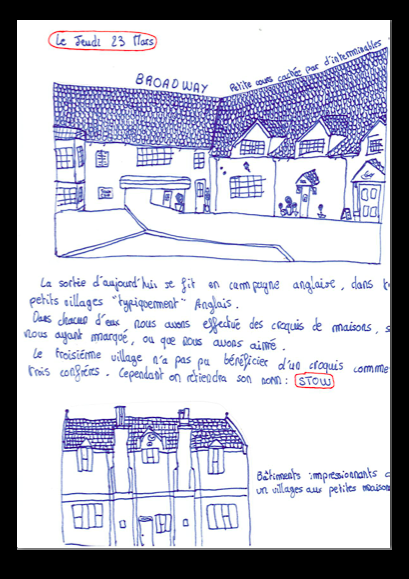 Le Jeudi 23 Mars
BROADWAY
Petite cours cachée par d'interminables
La sortie d'aujourd'hui se fit en campagne anglaise, dans
petits villages "typiquement" Anglais.
Dans chacun d'eux, nous avons effectué des croquis de maisons,
nous ayant marqué, ou que nous avons aimé.
Le troisième village n'a pas pu bénéficier d'un croquis comme
trois confrères. Cependant on retiendra son nom : STOW
Bâtiments impressionnants
un villages aux petites maisons